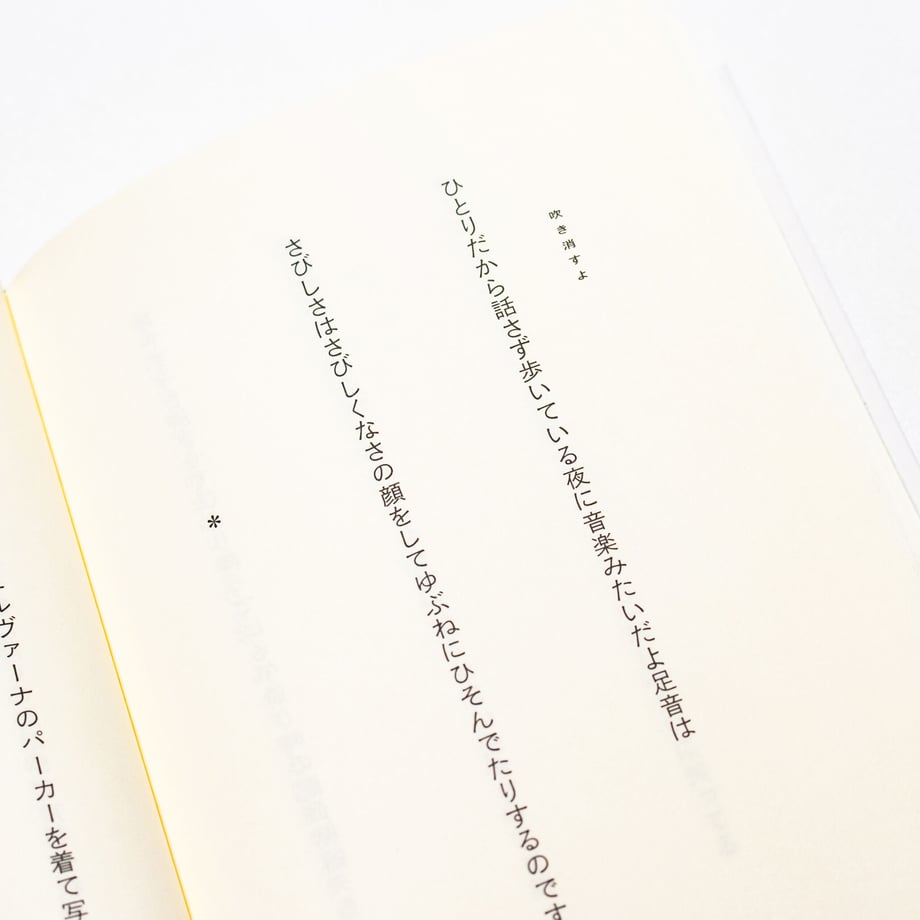 吹き消すよ
ひとりだから話さず歩いている夜に音楽みたいだよ足音は
さびしさはさびしくなさの顔をしてゆぶねにひそんでたりするのです
*
ルヴァーナのパーカーを着て写